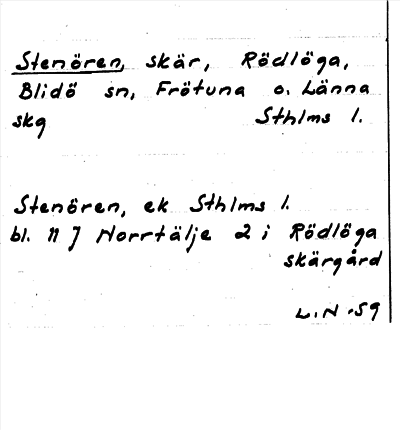 Stenören, skär, Rödlöga,
Blidö sn, Frötuna o. Länna
skg Sthlms l.
Stenören, ek Sthlms l.
bl. 11 J Norrtälje 2 i Rödlöga
skärgård
L.N -59